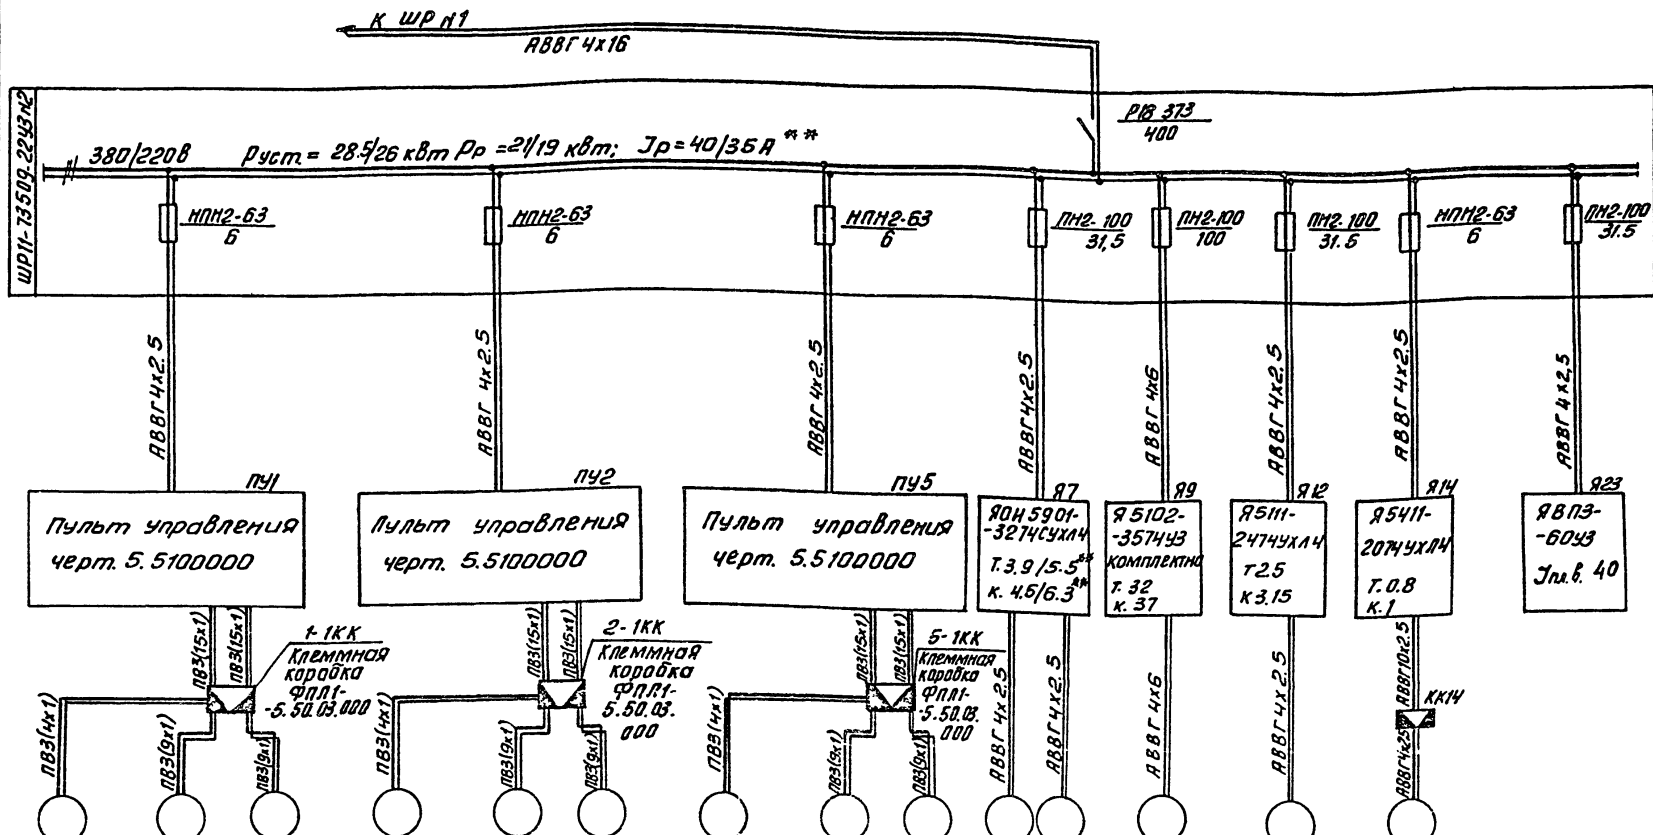 К ШР №1
АВВГ 4х16
ШР11-73509-22У3№2
Р18 373
400
380/220В
Руст = 28.5/26 кВт Рр =21/19 кВт; Jр=40/36А **
НПН2-63
6
НПН2-63
6
НПН2-63
6
ПН2-100
31,5
ПН2-100
100
ПН2-100
31.5
НПН2-63
6
ПН2-100
31.5
АВВГ 4х2.5
АВВГ 4х2.5
АВВГ 4х2.5
АВВГ 4х2.5
АВВГ 4х6
АВВГ 4х2.5
АВВГ 4х2.5
АВВГ 4х2,5
ПУ1
Пульт управления
черт. 5.5100000
ПУ2
Пульт управления
черт. 5.5100000
ПУ5
Пульт управления
черт. 5.5100000
Я7
ЯОИ5901-
-3274СУХЛ4
Т.3.9/5.5**
к. 4.6/6.3**
Я9
Я5102-
-3574У3
комплектно
Т. 32
к. 37
Я12
Я5111-
2474УХЛ4
т2.5
к3.15
Я14
Я5411-
2074УХЛ4
Т.0.8
к.1
Я23
ЯВПЗ-
-60У3
Jпл.в. 40
ПВ3(15х1)
ПВ3(15х1)
1-1КК
Клеммная
коробка
ФПЛ1-
-5.50.03.000
ПВ3(4х1)
ПВ3(9х1)
ПВ3(9х1)
ПВ3(15х1)
ПВ3(15х1)
2-1КК
Клеммная
коробка
ФПЛ1-
5.50.03.
000
ПВ3(4х1)
ПВ3(9х1)
ПВ3(9х1)
ПВ3(15х1)
ПВ3(15х1)
5-1КК
Клеммная
коробка
ФПЛ1-
-5.50.03.
000
ПВ3(4х1)
ПВ3(9х1)
ПВ3(9х1)
АВВГ 4х2.5
АВВГ 4х2.5
АВВГ 4х6
АВВГ 4х2.5
АВВГ10х2.5
КК14
АВВГ4х25